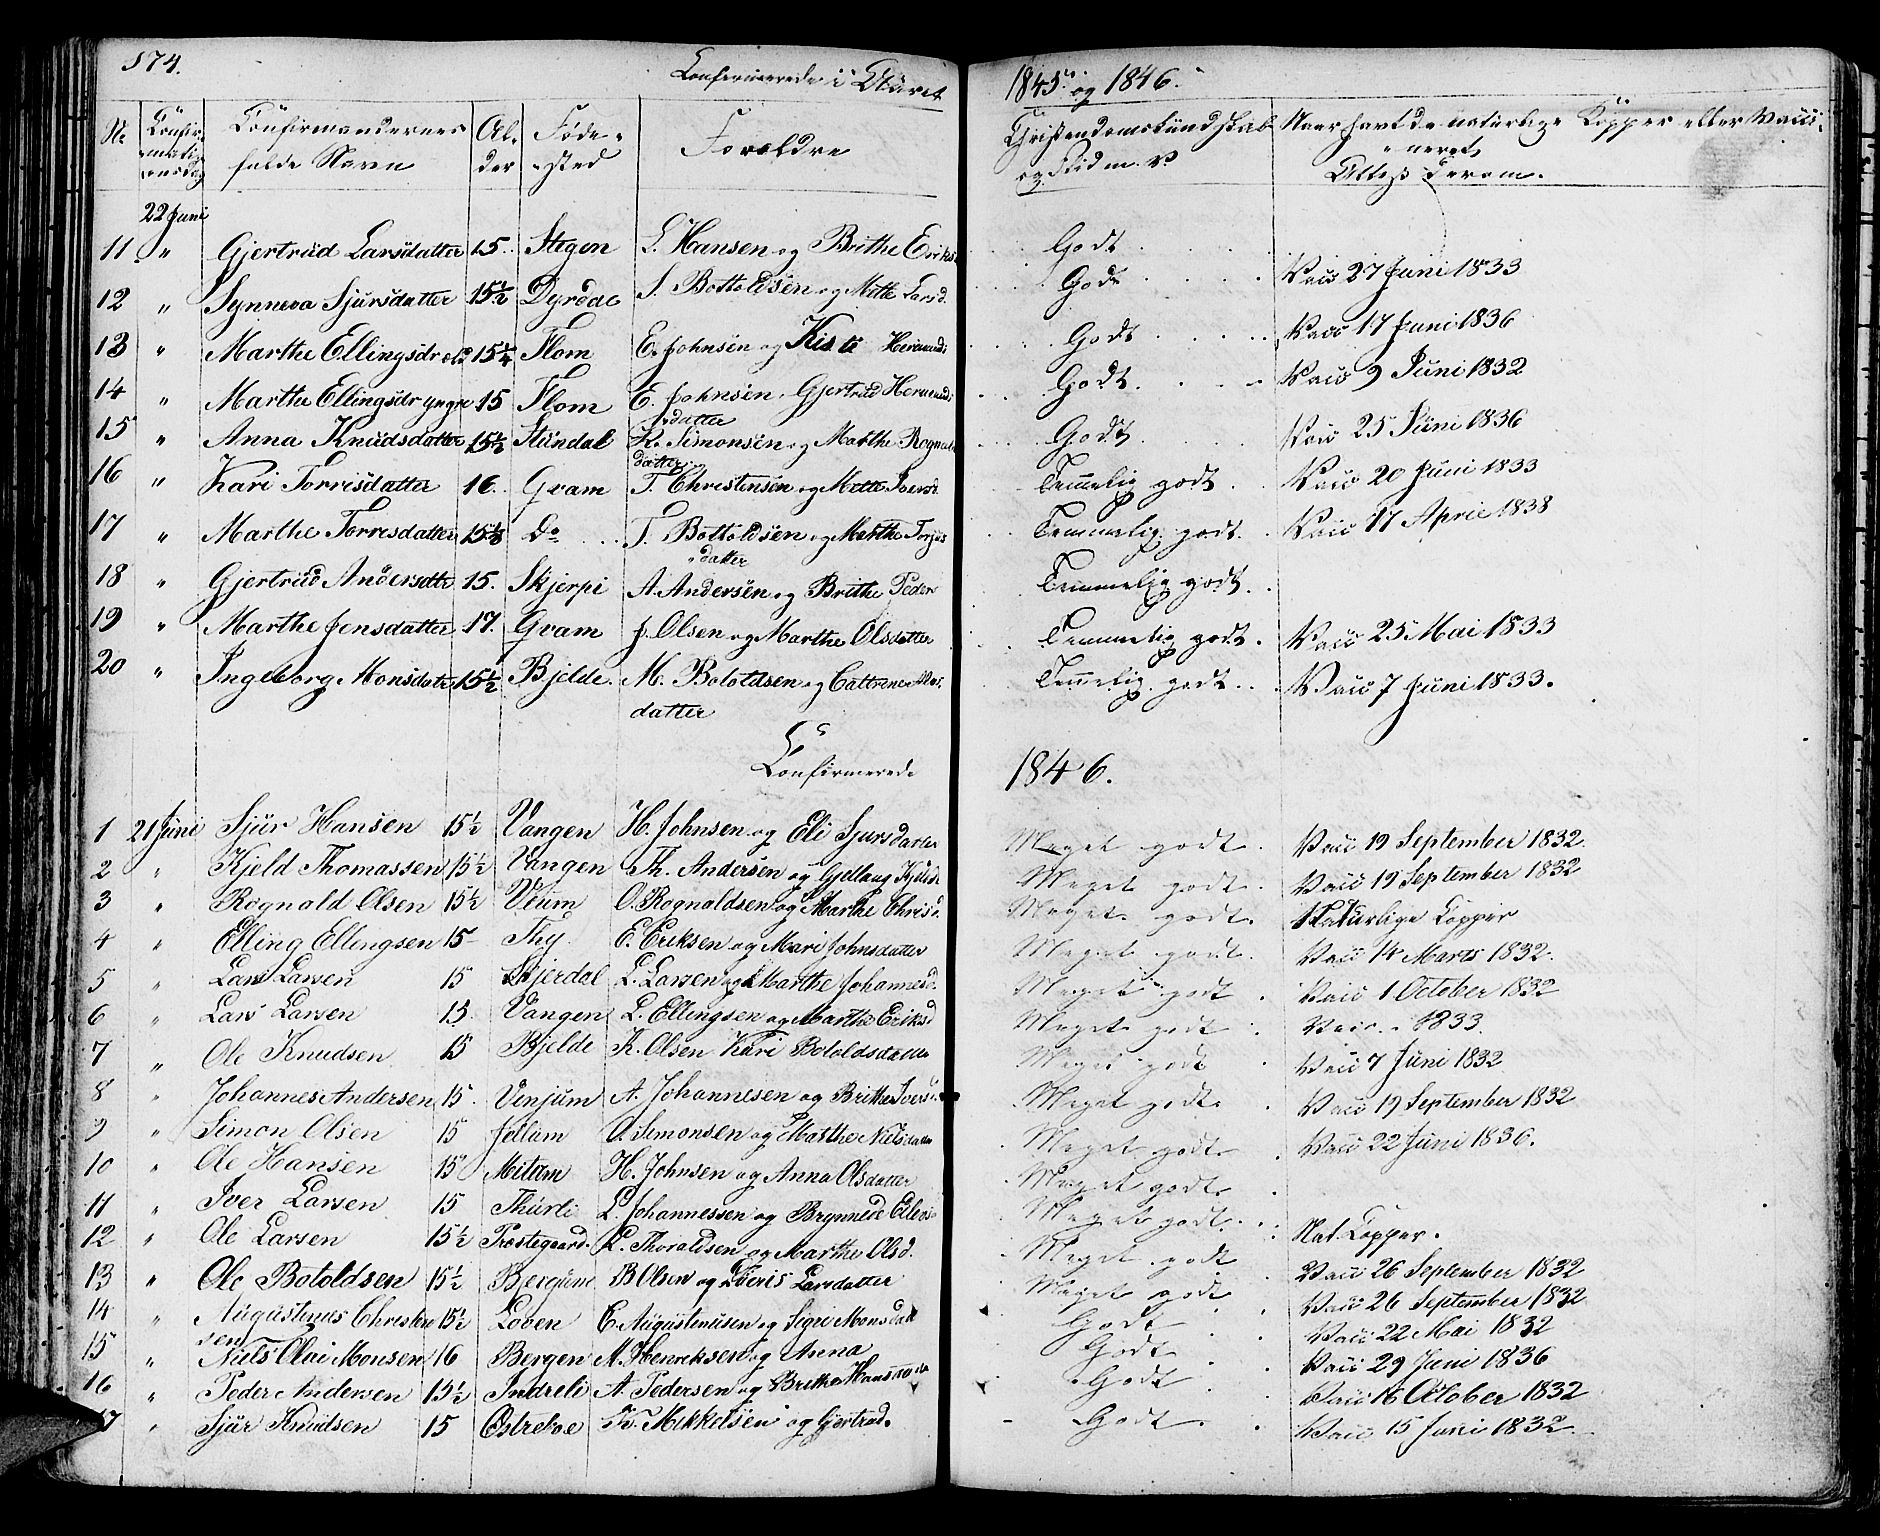 174.
Confirmerede i Aaret 1845 og 1846.
Nr Confirmationsdag Confirmandernes fulde Navn Alder Fødested Forældre Christendomskundskab og Flid m. v. Naar havt de naturlige Kopper eller Vaccineret Attest derom.
22 Juni
11 " Gjertrud Larsdatter 15 Stegen L. Hansen og Brithe Eriks Godt
12 " Synneva Sjursdatter 15½ Dyrdal S. Bottoldsen og Mette Larsd. Godt Vacc 27 Juni 1833
13 " Marthe Ellingsdr 15¼ Flom E. Johnsen og Herm Godt Vacc 17 Juni 1836
14 " Marthe Ellingsdr yngre 15 Flom E. Johnsen, Gjertrud Hermunds datter Godt Vacc 9 Juni 1832
15 " Anna Knudsdatter 15½ Stundal K. Simonsen og Marthe Rognalds datter Godt Vacc 25 Juni 1836
16 " Kari Torrisdatter 16 Gvam T. Christensen og Mette Iversd Temmelig godt Vacc 20 Juni 1833
17 " Marthe Torresdatter 15 Do T. Bottoldsen og Marthe Torjus datter Temmelig godt Vacc 17 April 1838
18 " Gjertrud Andersdtr 15. Skjerpi A. Andersen og Brithe Peder Temmelig godt
19 " Marthe Jensdatter 17 Gvam J. Olsen og Marthe Olsdatter Temmelig godt Vacc 25 Mai 1833
20 " Ingeborg Monsdatr 15½ Bjelde. M. Bototdsen og Cattrine datter Temmelig godt Vacc 7 Juni 1833.
Confirmerede 1846.
1 21 Juni Sjur Hansen 15½ Vangen H. Johnsen og Eli Sjursdatter Meget godt Vacc 19 September 1832
2 " Kjeld Thomassen 15½ Vangen Th. Andersen og Meget godt Vacc 19 September 1832
3 " Rognald Olsen 15½ Veum O. Rognaldsen og Marthe Chrisd. Meget godt Naturlige Kopper
4 " Elling Ellingsen 15 Thy E. Eriksen og Mari Johnsdatter Meget godt Vacc 14 Marts 1832.
5 " Lars Larsen 15 Skjerdal L. Larsen og Marthe Johannesd. Meget godt Vacc 1 October 1832
6 " Lars Larsen 15 Vangen L. Ellingsen og Marthe Eriksd Meget godt Vacc. 1833
7 " Ole Knudsen 15 Bjelde K. Olsen Kari Botoldsdatter Meget godt Vacc 7 Juni 1832
8 " Johannes Andersen 15 Vinjum A. Johannesen og Brithe Ivers Meget godt Vacc 19 September 1832
9 " Simon Olsen 15 Jellum O. Simonsen og Marthe Nielsdatter Meget godt Vacc 22 Juni 1836.
10 " Ole Hansen 15 Mitum H. Johnsen og Anna Olsdatter Meget godt
11 " Iver Larsen 15 Thurli L. Johannessen og Brynnede Meget godt Nat. Kopper.
12 " Ole Larsen 15½ Prestegaard. L. Thoraldsen og Marthe Olsd. Meget godt Vacc 26 September 1832
13 " Ole Botoldsen 15½ Bergum B Olsen og Larsdatter Meget godt Vacc 26 September 1832
14 " Augustinus Christensen 15½ Loven C. Augustinusen og Sigri Monsdatt Godt Vacc 22 Mai 1832
15 " Niels Olai Monsen 16 Bergen M. Henriksen og Anna Godt Vacc 29 Juni 1836
16 " Peder Andersen 15½ Indreli A. Pedersen og Brithe Godt Vacc 16 October 1832
17 " Sjur Knudsen 15 Østreboe Kn. Mikkelsen og Gjertrud. Godt Vacc 15 Juni 1832